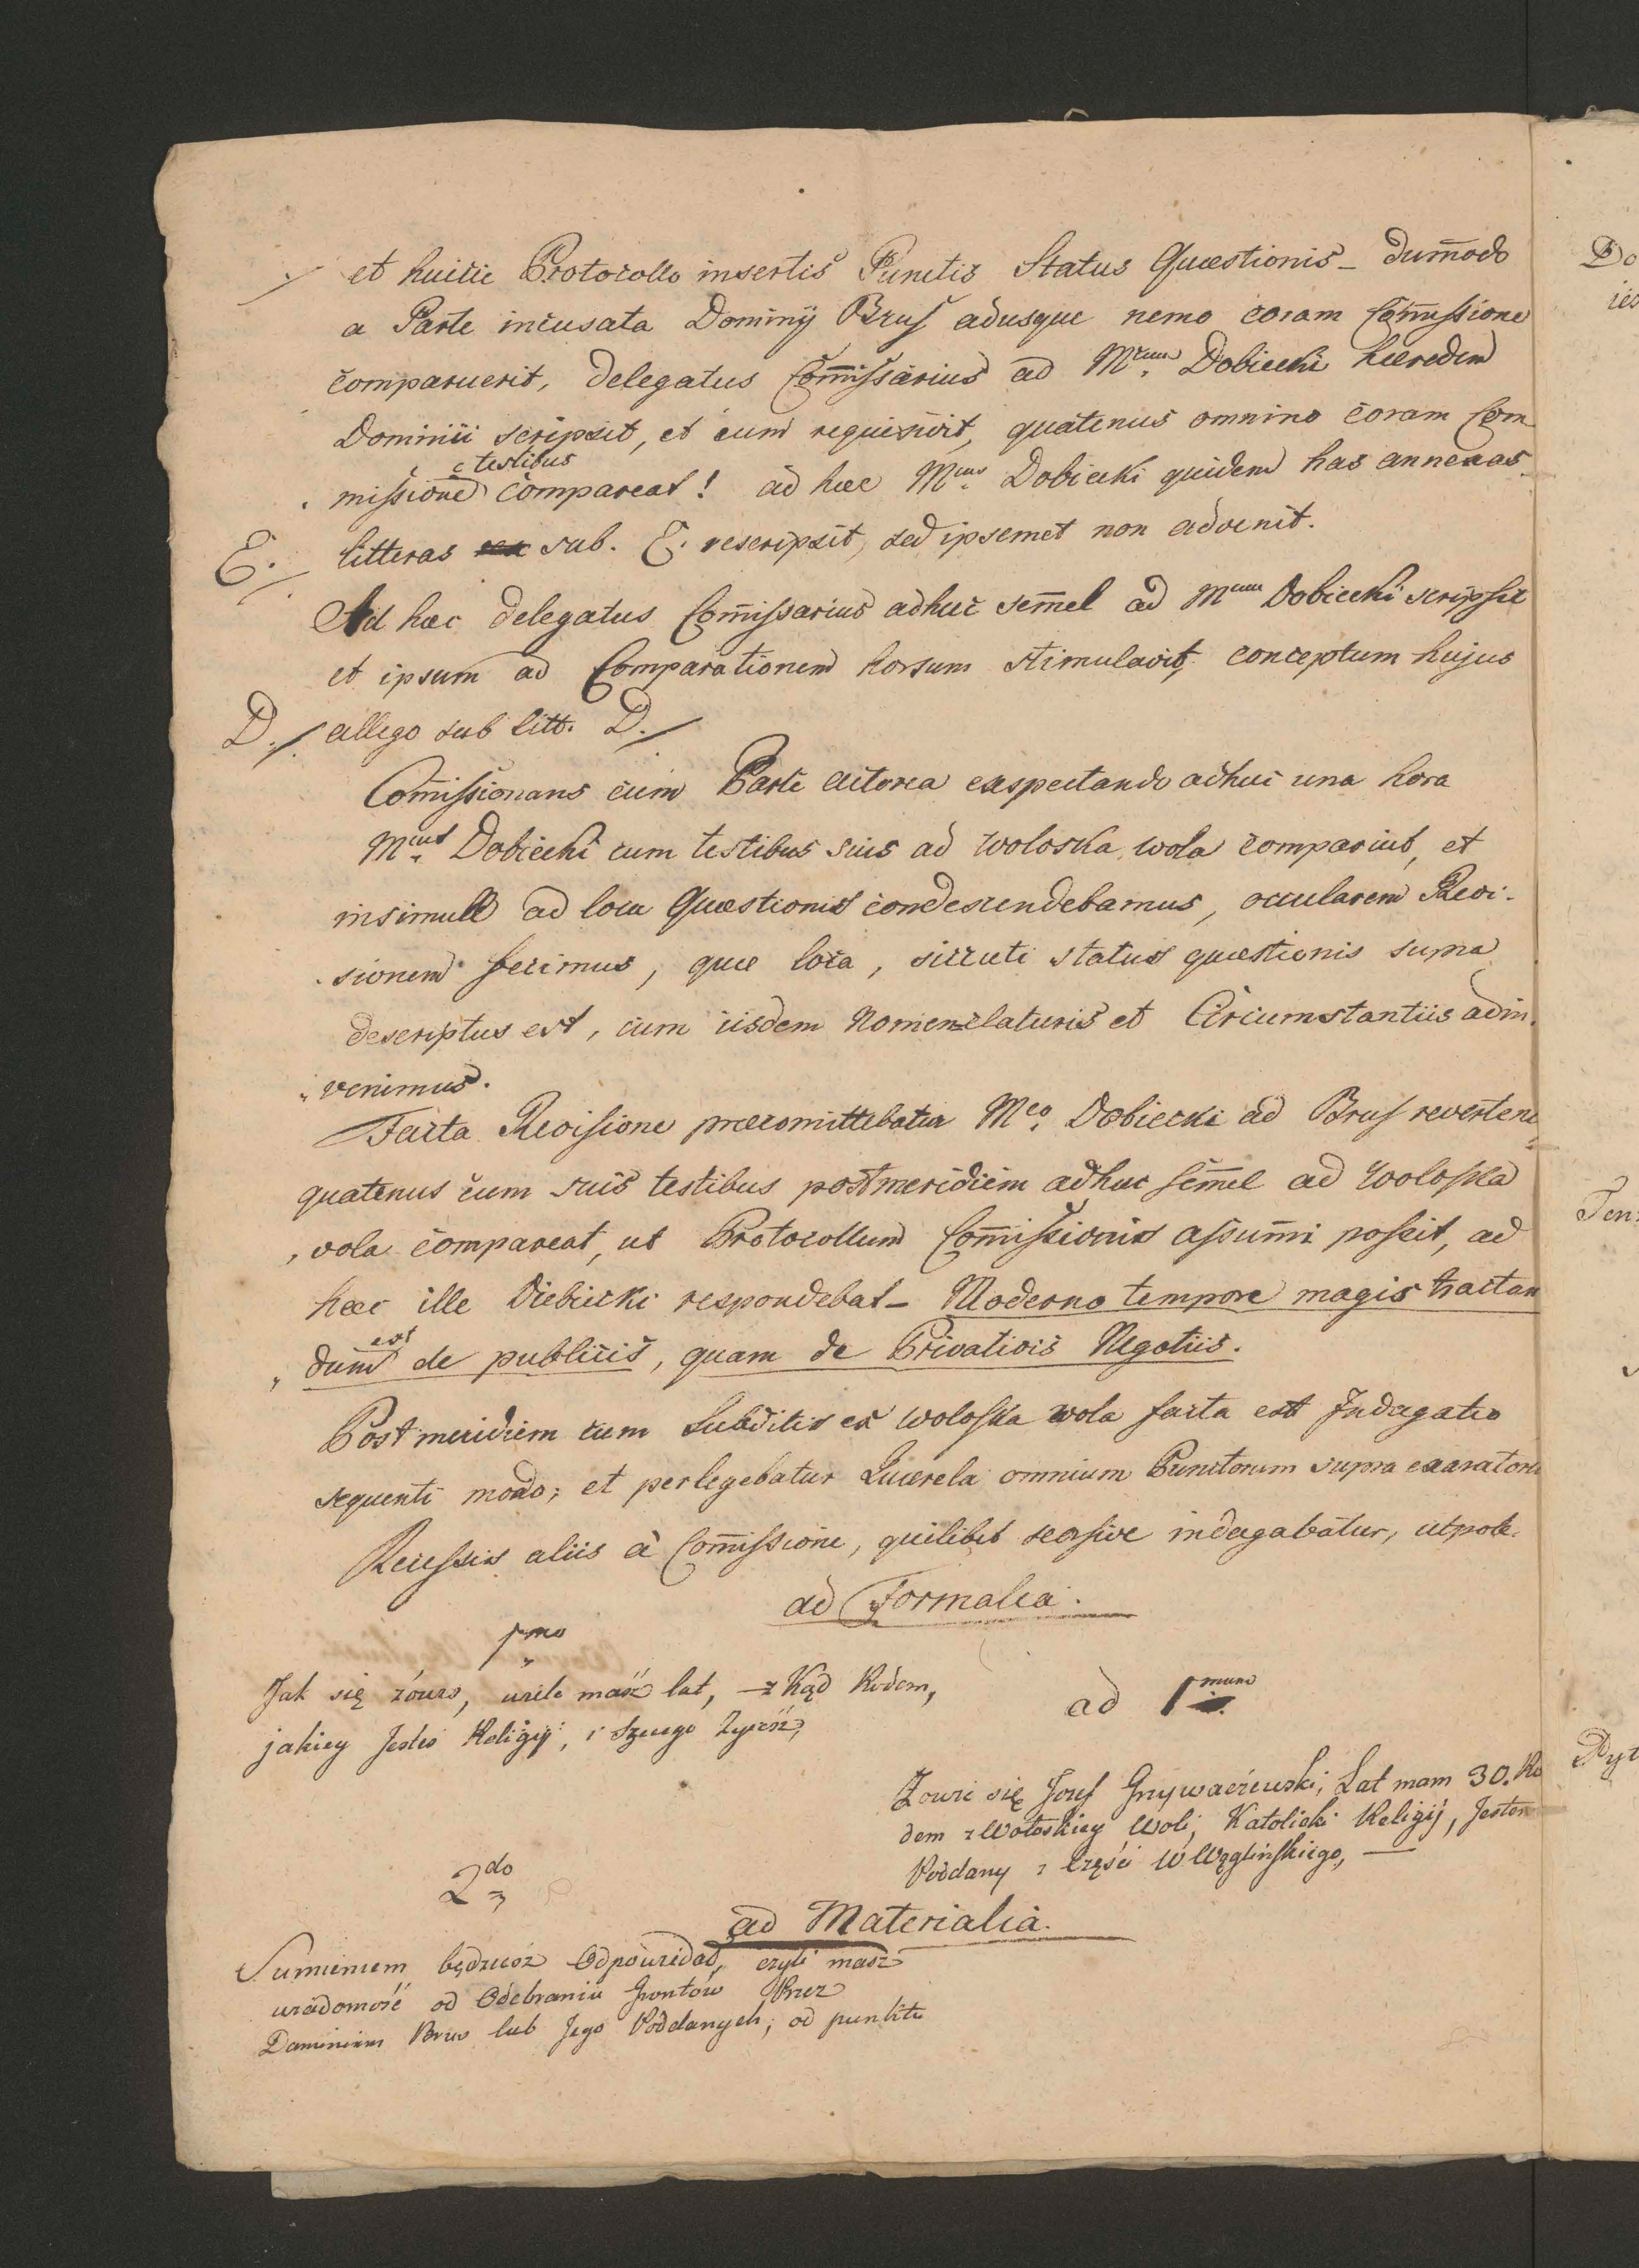 et huicce Protocollo insertis Punctis Status Quæstionis _ dum̄odo
a Parte incusata Dominij Brus adusque nemo coram Com̄issione
comparuerit, delegatus Com̄issarius ad Mcum Dobiecki hæredem
Dominii scripsit, et eum requisivit, quatenus omnino coram Com
missione c testibus compareat! ad hæc Mcus Dobiecki quidem has annexas
E. litteras sub. E. rescripsit, sed ipsemet non advenit.
Ad hæc delegatus Com̄issarius adhuc sem̄el ad Mcum Dobiecki scripsit
et ipsum ad Comparationem horsum stimulavit, conceptum hujus
D./ allego sub litt. D./
Com̄issionans cum Parte actorea exspectando adhuc una hora
Mcus Dobiecki cum testibus suis ad Woloska wola comparuit, et
insimull ad loca Quæstionis condescendebamus, occularem Revi-
sionem fecimus, quæ loca, sicuti status quæstionis supra
descriptus est, cum iisdem Nomenclaturis et Circumstantiis adin
venimus.
Facta Revisione præcomittebatur Mco Dobiecki ad Brus reverten
quatenus cum suis testibus postmeridiem adhuc sem̄el ad Woloska
wola compareat, ut Protocollum Com̄issionis assum̄i possit, ad
hæc ille Diebiecki respondebat _ Moderno tempore magis tractan
dum est de publicis, quam de Privativis Negotiis.
Post meridiem cum Subditis ex Woloska wola facta est Indagatio
sequenti modo; et perlegebatur Quærela omnium Punctorum supra exaratoru
Recessis aliis à Com̄issione, quilibet seorsive indagabatur, utpote.
ad Formalia.
1mo
Jak się zowiesz, wiele masz lat, z kąd Rodem,
jakiey Jesteś Religij, i Czyiego
ad 1mum
Zowie się Jozef Grzywaczewski, Lat mam 30. Ro
dem z Wołoskiey Woli, Katolicki Religij, Jestem
Poddany z Części W Węglińskiego, —
2do
ad Materialia.
Sumieniem będziesz Odpowiedać, czyli masz
wiadomość od Odebraniu Gruntów Przez
Dominium Brus lub Jego Poddanych; od punktu